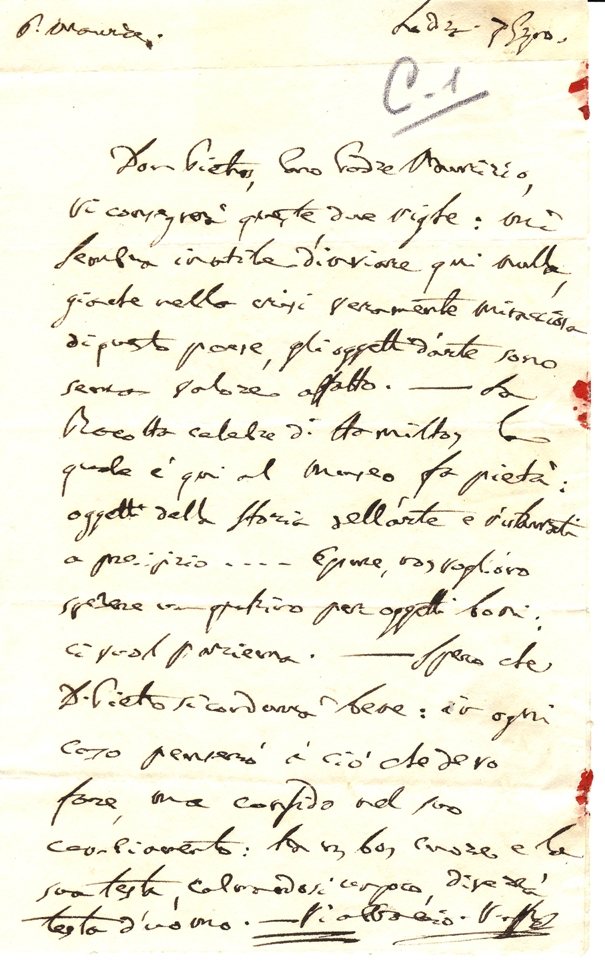 P. Maurizio.
C-1
Don Pietro, Padre Maurizio,
vi consegnerà queste due righe: mi
sembra inutile d'inviare qui nulla,
giacchè nella crisi veramente minacciosa
di questo paese, gli oggetti d'arte sono
senza valore affatto. — La
Racolta celebre di Hamilton la
quale è qui al Museo fa pietà:
oggetti della storia dell'arte e
a ---- Epure, non vogliono
spendere un quatrino per oggetti boni;
ci vuol pazienza. — Spero che
D. Pietro si condurrà bene: in ogni
caso penserò a ciò che devo
fare, ma confido nel suo
cambiamento: ha un bon cuore e la
sua testa, calmandosi un poco, diverrà
testa d'uomo. — Vi abbraccio.